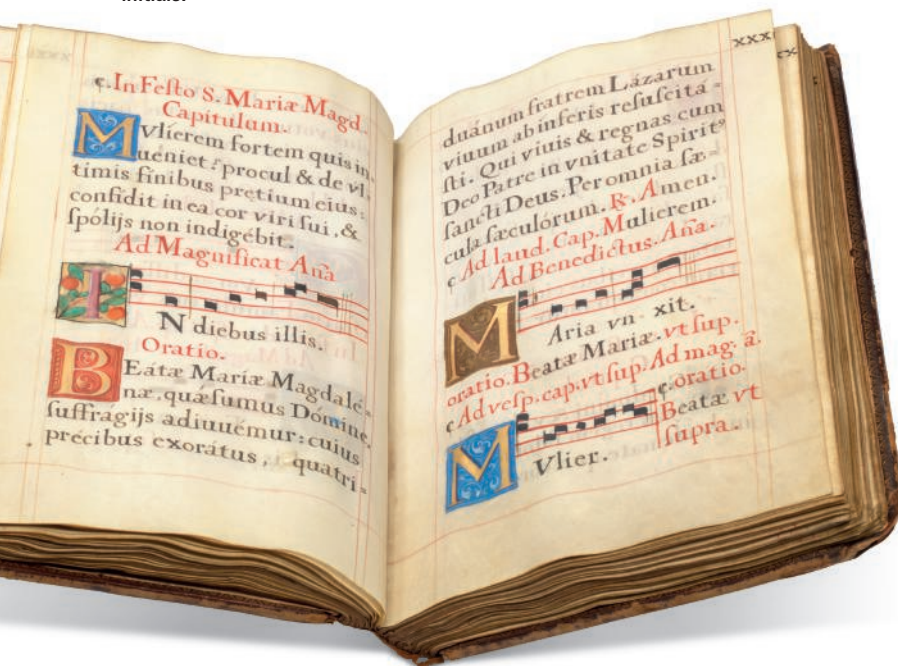 c. In Feſto S. Mariæ Magd.
Capitulum.
Mvlierem fortem quis in=
ueniet? procul & de vl=
timis finibus pretium eius:
confidit in ea cor viri ſui, &
ſpólijs non indigébit.
Ad Magnificat Aña
IN diebus illis.
Oratio.
BEátæ Maríæ Magdalé=
næ, quæſumus Dómine,
ſuffragijs adiuuémur: cuius
précibus exorátus, quatri=
xxx
duánum fratrem Lázarum
viuum ab ínferis reſuſcita=
ſti. Qui viuis & regnas cum
Deo Patre in vnitate Spirit⁹
ſancti Deus: Per omnia ſæ=
cula ſæculórum. ℟. Amen.
c Ad laud. Cap. Mulierem.
Ad Benedictus. Aña.
MAria vn xit.
oratio. Beatæ Mariæ. vt ſup.
c Ad veſp. cap. vt ſup. Ad mag. ã.
c. oratio.
Beatæ vt
ſupra.
MVlier.